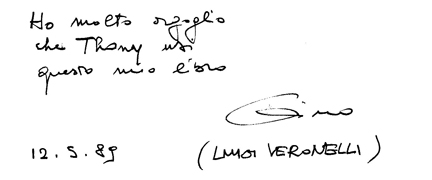 Ho molto orgoglio
che Thony usi
questo mio libro
Gino
12.5.89 (LUIGI VERONELLI)